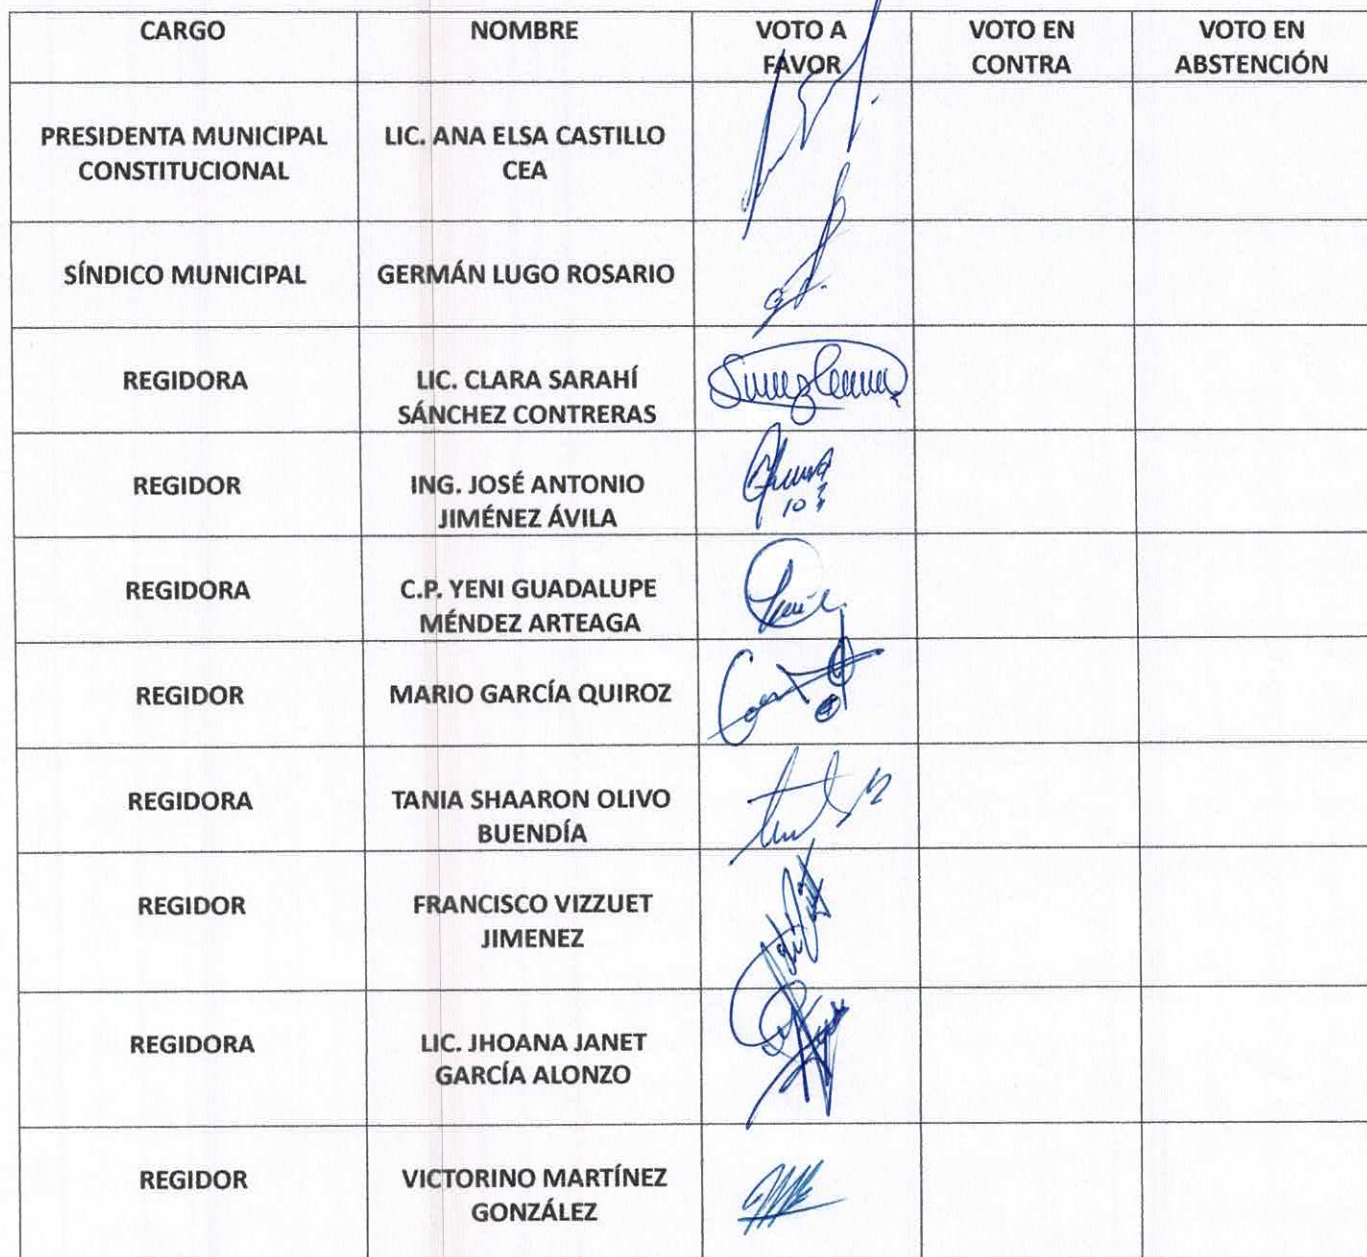 CARGO NOMBRE VOTO A FAVOR VOTO EN CONTRA VOTO EN ABSTENCIÓN
PRESIDENTA MUNICIPAL CONSTITUCIONAL LIC. ANA ELSA CASTILLO CEA
SÍNDICO MUNICIPAL GERMÁN LUGO ROSARIO
REGIDORA LIC. CLARA SARAHÍ SÁNCHEZ CONTRERAS
REGIDOR ING. JOSÉ ANTONIO JIMÉNEZ ÁVILA
REGIDORA C.P. YENI GUADALUPE MÉNDEZ ARTEAGA
REGIDOR MARIO GARCÍA QUIROZ
REGIDORA TANIA SHAARON OLIVO BUENDÍA
REGIDOR FRANCISCO VIZZUET JIMENEZ
REGIDORA LIC. JHOANA JANET GARCÍA ALONZO
REGIDOR VICTORINO MARTÍNEZ GONZÁLEZ